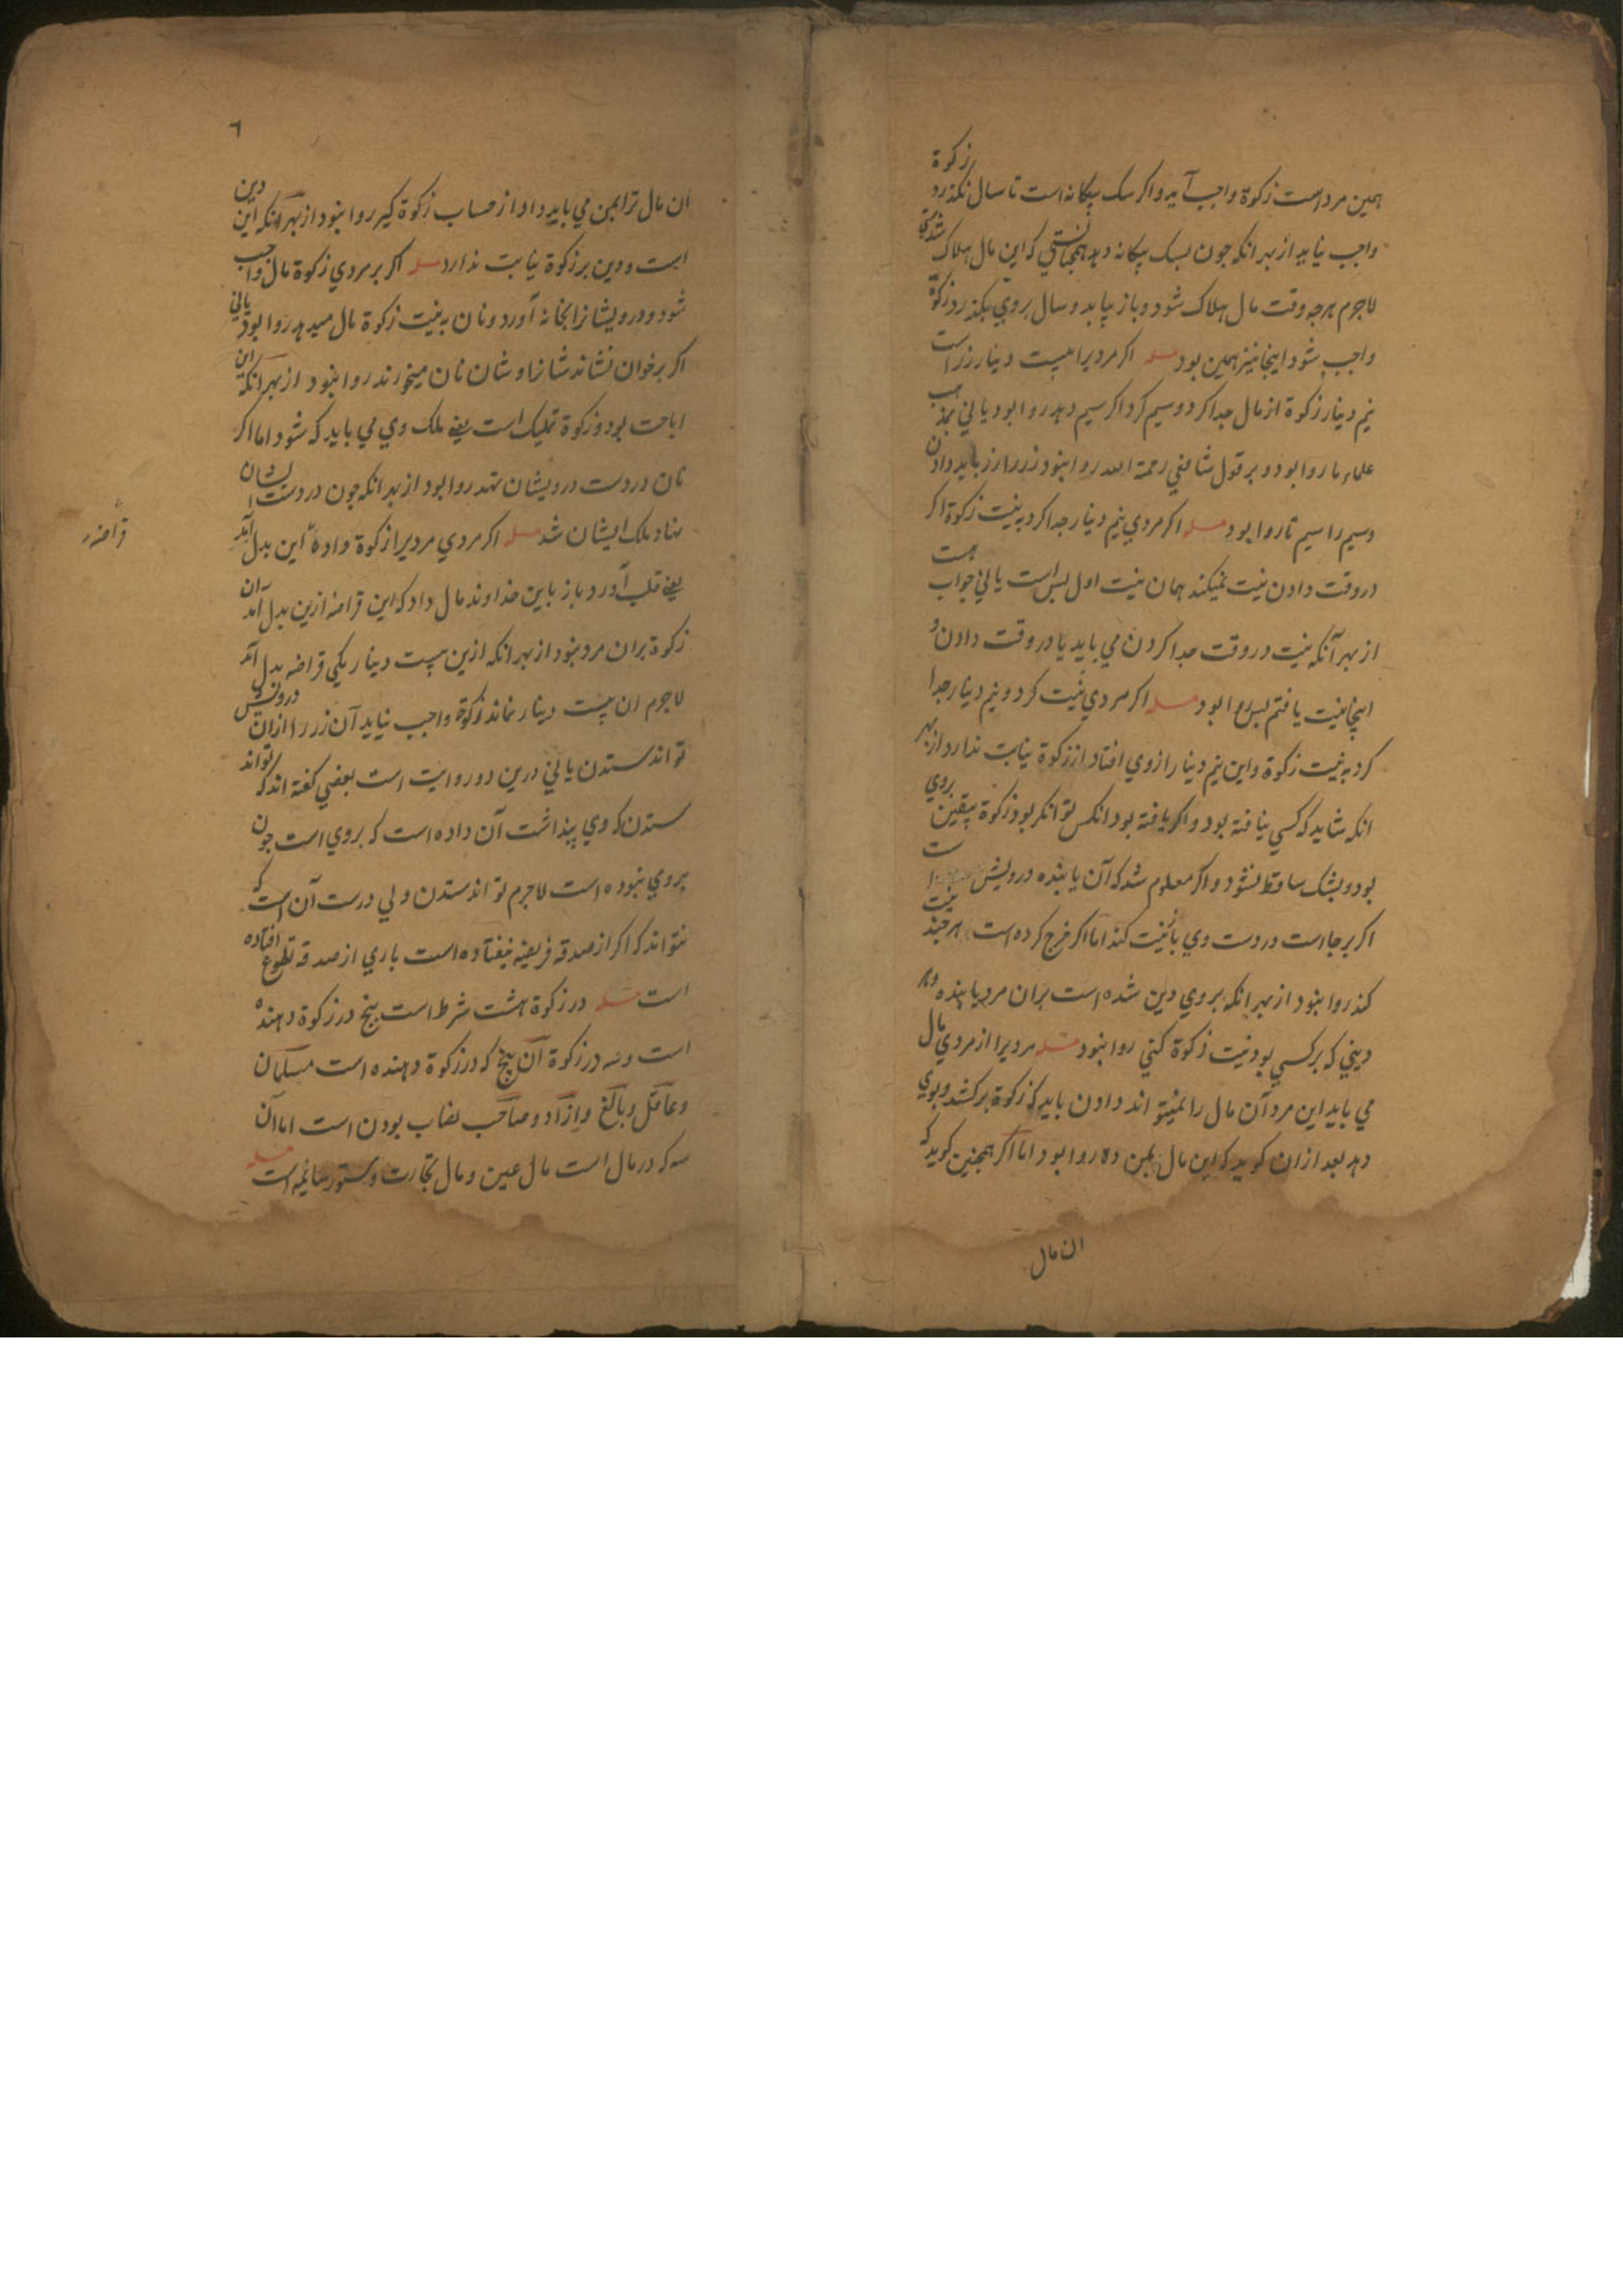 همین مرد است زکوة واجب آید و اکر سک بیکانه است تا سال نکذرد زکوة
واجب نیاید از بهر انکه جون بسک بیکانه دهد همجنانستی که این مال هلاک شدستی
لاجرم هرجه وقت مال هلاک شود و باز بیابد و سال بروی بکذرد زکوة
واجب شود اینجا نیز همین بود مسله اکر مردیرا بیست دینار زر است
نیم دینار زکوة از مال جدا کرد و سیم کرد اکر سیم دهد روا بود یا نی بمذهب
علماء ما روا بود و بر قول شافعی رحمة الله روا نبود زر را زر باید دادن
و سیم را سیم تا روا بود مسله اکر مردی نیم دینار جدا کرد به نیت زکوة اکر
در وقت دادن نیت نمیکند همان نیت اول بس است یا نی جواب هست
از بهر آنکه نیت در وقت جدا کردن می باید یا در وقت دادن و
اینجا نیت یافتم بس روا بود مسله اکر مردی نیت کرد و نیم دینار جدا
کرد به نیت زکوة و این نیم دینار از وی افتاد از زکوة نیابت ندارد از بهر
انکه شاید که کسی نیافته بود و اکر یافته بود انکس توانکر بود زکوة بیقین بروی
بود و بشک ساقط نشود و اکر معلوم شد که آن یابنده درویش است
اکر بر جا است در دست وی بازنیت کند اما اکر خرج کرده است هر جند نیت
کند روا نبود از بهر انکه بروی دین شده است بران مرد یابنده و بهر
دینی که بر کسی بود نیت زکوة کنی روا نبود مسله مردیرا از مردی مال
می باید این مرد آن مال را نمیتواند دادن باید که زکوة برکشد و بوی
دهد بعد ازان کوید که این مال بمن ده روا بود اما اکر همجنین کوید که
ان مال
٦
ان مال ترا بمن می باید داد از حساب زکوة کیر روا نبود از بهر آنکه این دین
است و دین بر زکوة نیابت ندارد مسله اکر بر مردی زکوة مال واجب
شود و درویشانرا بخانه آورد و نان به نیت زکوة مال میدهد روا بود یا نی
اکر بر خوان نشاند شانرا و شان نان میخورند روا نبود از بهر آنکه این
اباحت بود و زکوة تملیک است یعنی ملک وی می باید که شود اما اکر
نان در دست درویشان نهد روا بود از بهر انکه جون در دست ایشان
نهاد ملک ایشان شد مسله اکر مردی مردیرا زکوة داده این بدل آمد
یعنی قلب آورد و باز باین خداوند مال داد که این قراضه ازین بدل آمد آن
زکوة بران مرد نبود از بهر انکه ازین بیست دینار یکی قراضه بدل آمد
لاجرم ان بیست دینار نماند و زکوة واجب نیاید آن زر را ازان درویش
تواند ستدن یا نی درین دو روایت است بعضی کفته اند که تواند
ستدن که وی بنداشت آن داده است که بروی است جون
بروی نبوده است لاجرم تواند ستدن ولی درست آن است که
نتواند که اکر از صدقه فریضه نیفتاده است باری از صدقه تطوع افتاده
است مسله در زکوة هشت شرط است بنج در زکوة دهنده
است و سه در زکوة آن بنج که در زکوة دهنده است مسلمان
و عاقل و بالغ و ازاد و صاحب نصاب بودن است اما آن
سه که در مال است مال عین و مال تجارت و ستور سائمه است مسله
قراضه